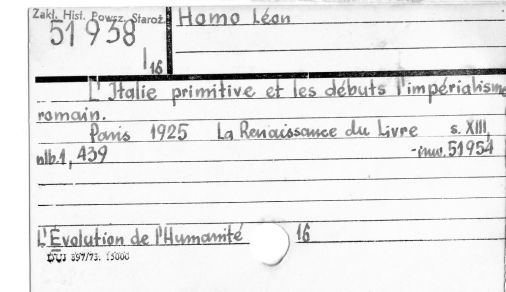 Zakł. Hist. Powsz. Staroż.
51938
16
Homo Léon
L'Italie primitive et les débuts l'impérialisme
romain.
Paris 1925 La Renaissance du Livre s. XIII,
nlb.1, 439 -inw. 51954
L'Évolution de l'Humanité 16
DUJ 397/73. 15000